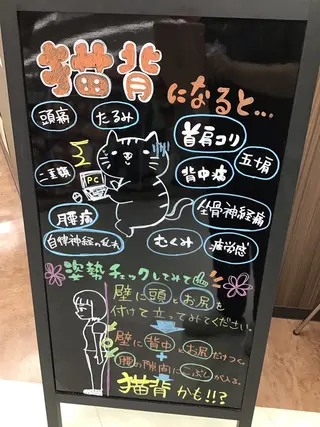 猫背になると…
頭痛
たるみ
首肩コリ
五十肩
二重顎
PC
背中痛
腰痛
坐骨神経痛
自律神経の乱れ
むくみ
疲労感
姿勢チェックしてみて
壁に頭とお尻を
付けて立ってみてください。
壁に背中とお尻だけつく。
+
腰の隙間にこぶしが入る。
猫背かも!!?